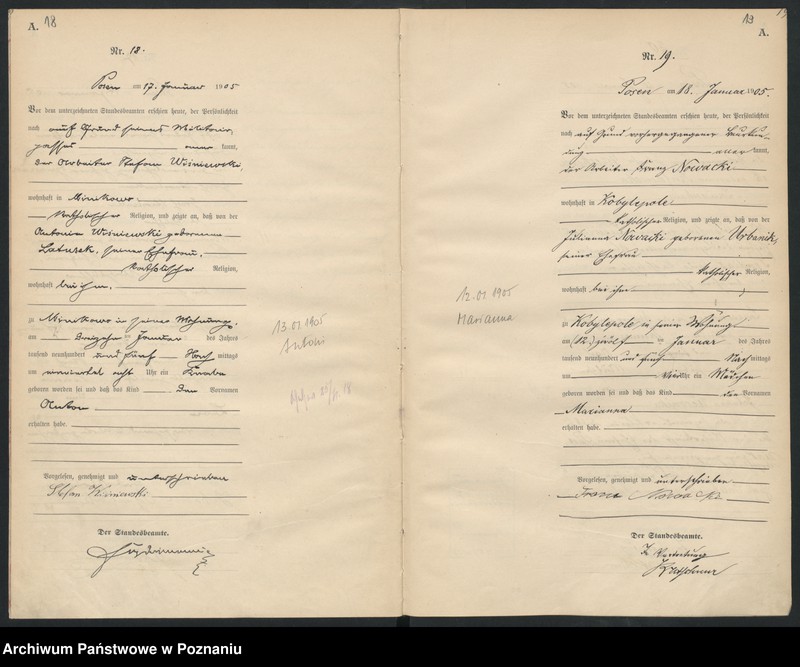 A. 18
Nr. 18.
Posen am 17. Januar 1905
Vor dem unterzeichneten Standesbeamten erschien heute, der Persönlichkeit
nach auf Grund seines Militär-
passes kannt,
der Arbeiter Stefan Wiśniewski,
wohnhaft in Minikowo
katholischer Religion, und zeigte an, daß von der
Antonie Wiśniewski geborenen
Latusek, seiner Ehefrau,
katholischer Religion,
wohnhaft bei ihm,
zu Minikowo in seiner Wohnung,
am dreizehn ten Januar des Jahres
tausend neunhundert und fünf Nach mittags
um acht Uhr ein Knabe
geboren worden sei und daß das Kind den Vornamen
Anton
erhalten habe.
Vorgelesen, genehmigt und unterschrieben
Der Standesbeamte.
13.01.1905
Antoni
19
A.
Nr. 19.
Posen am 18. Januar 1905.
Vor dem unterzeichneten Standesbeamten erschien heute, der Persönlichkeit
nach auf Grund vorhergegangener Beurkun-
dung aner kannt,
der Arbeiter Franz Nowacki
wohnhaft in Kobylepole
katholischer Religion, und zeigte an, daß von der
Julianna Nowacki geborenen Urbaniak,
seiner Ehefrau
katholischer Religion,
wohnhaft bei ihm
zu Kobylepole in seiner Wohnung
am (12.) zwölf ten Januar des Jahres
tausend neunhundert und fünf Nach mittags
um vier Uhr ein Mädchen
geboren worden sei und daß das Kind den Vornamen
Marianna
erhalten habe.
Vorgelesen, genehmigt und unterschrieben
Franz Nowacki
Der Standesbeamte.
In Vertretung
12.01 1905
Marianna
Archiwum Państwowe w Poznaniu